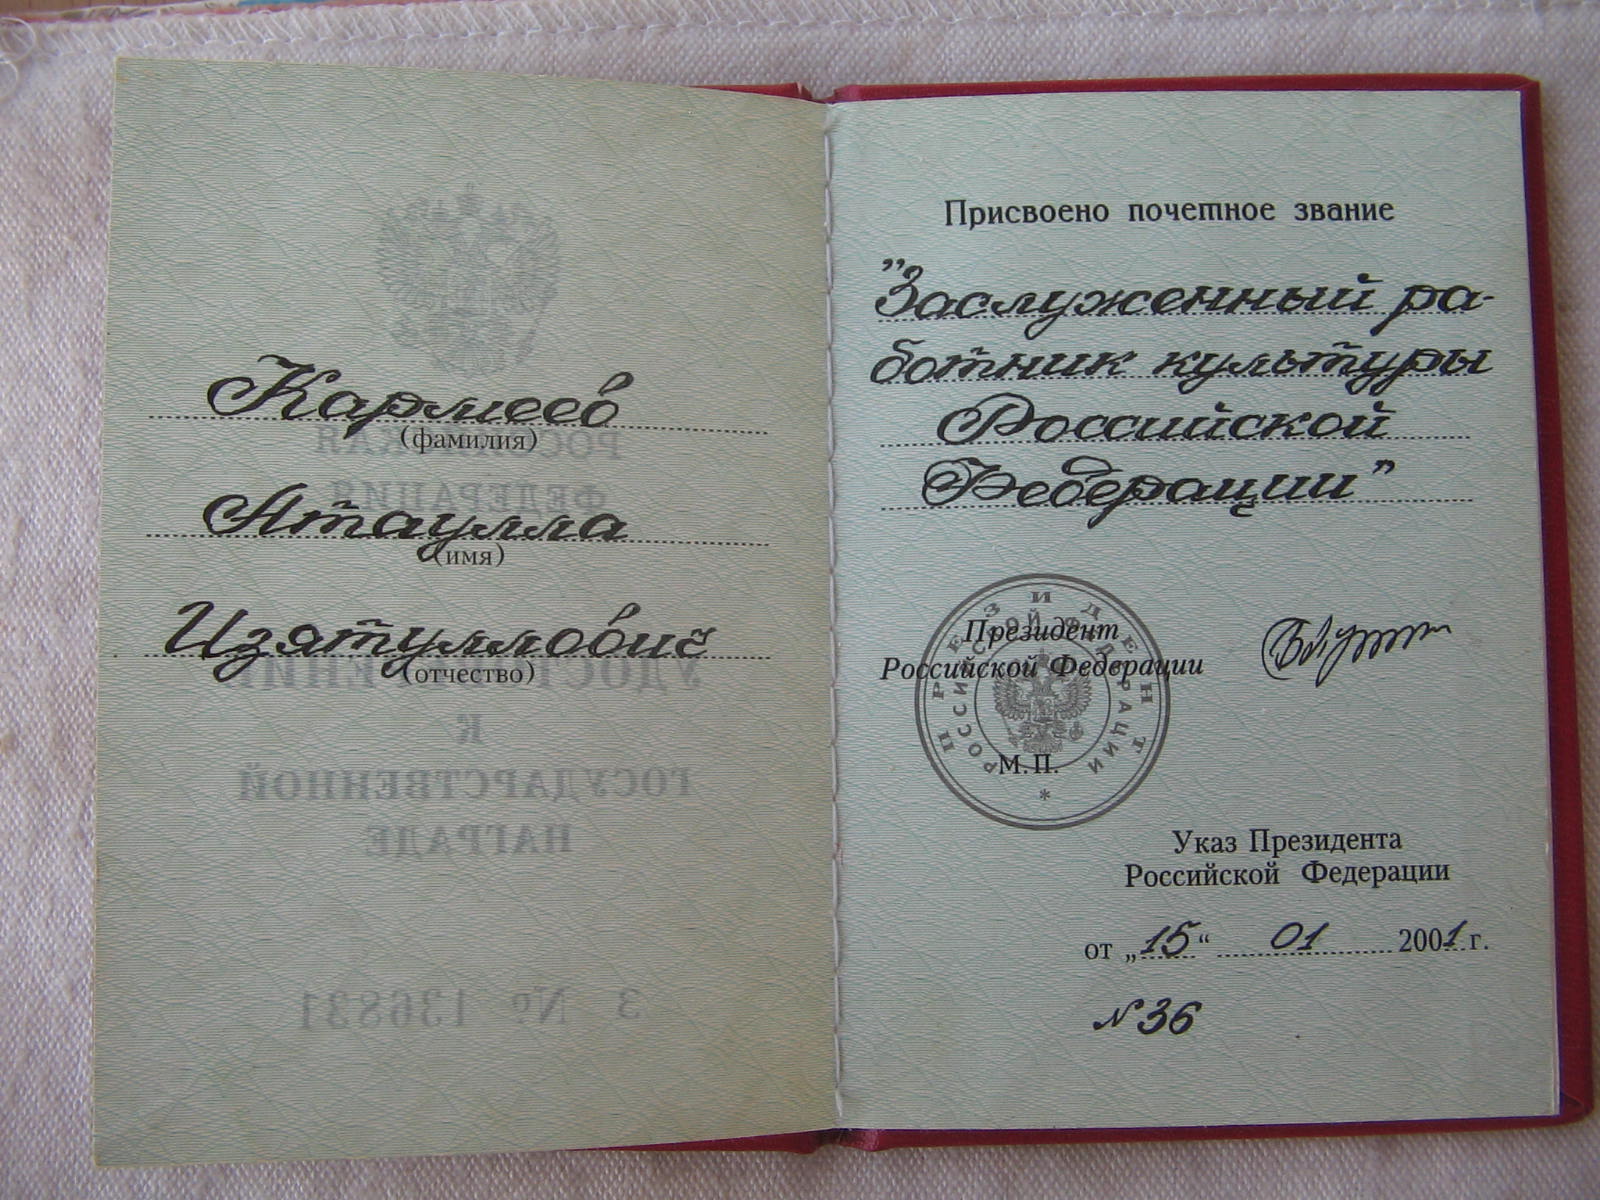 Кармеев
(фамилия)
Атаулла
(имя)
Изятуллович
(отчество)
РОССИЙСКАЯ
ФЕДЕРАЦИЯ
УДОСТОВЕРЕНИЕ
К
ГОСУДАРСТВЕННОЙ
НАГРАДЕ
З № 136831
Присвоено почетное звание
"Заслуженный ра-
ботник культуры
Российской
Федерации"
Президент
Российской Федерации
ПРЕЗИДЕНТ
РОССИЙСКОЙ ФЕДЕРАЦИИ
М.П.
*
Указ Президента
Российской Федерации
от „15“ 01 2001 г.
№ 36